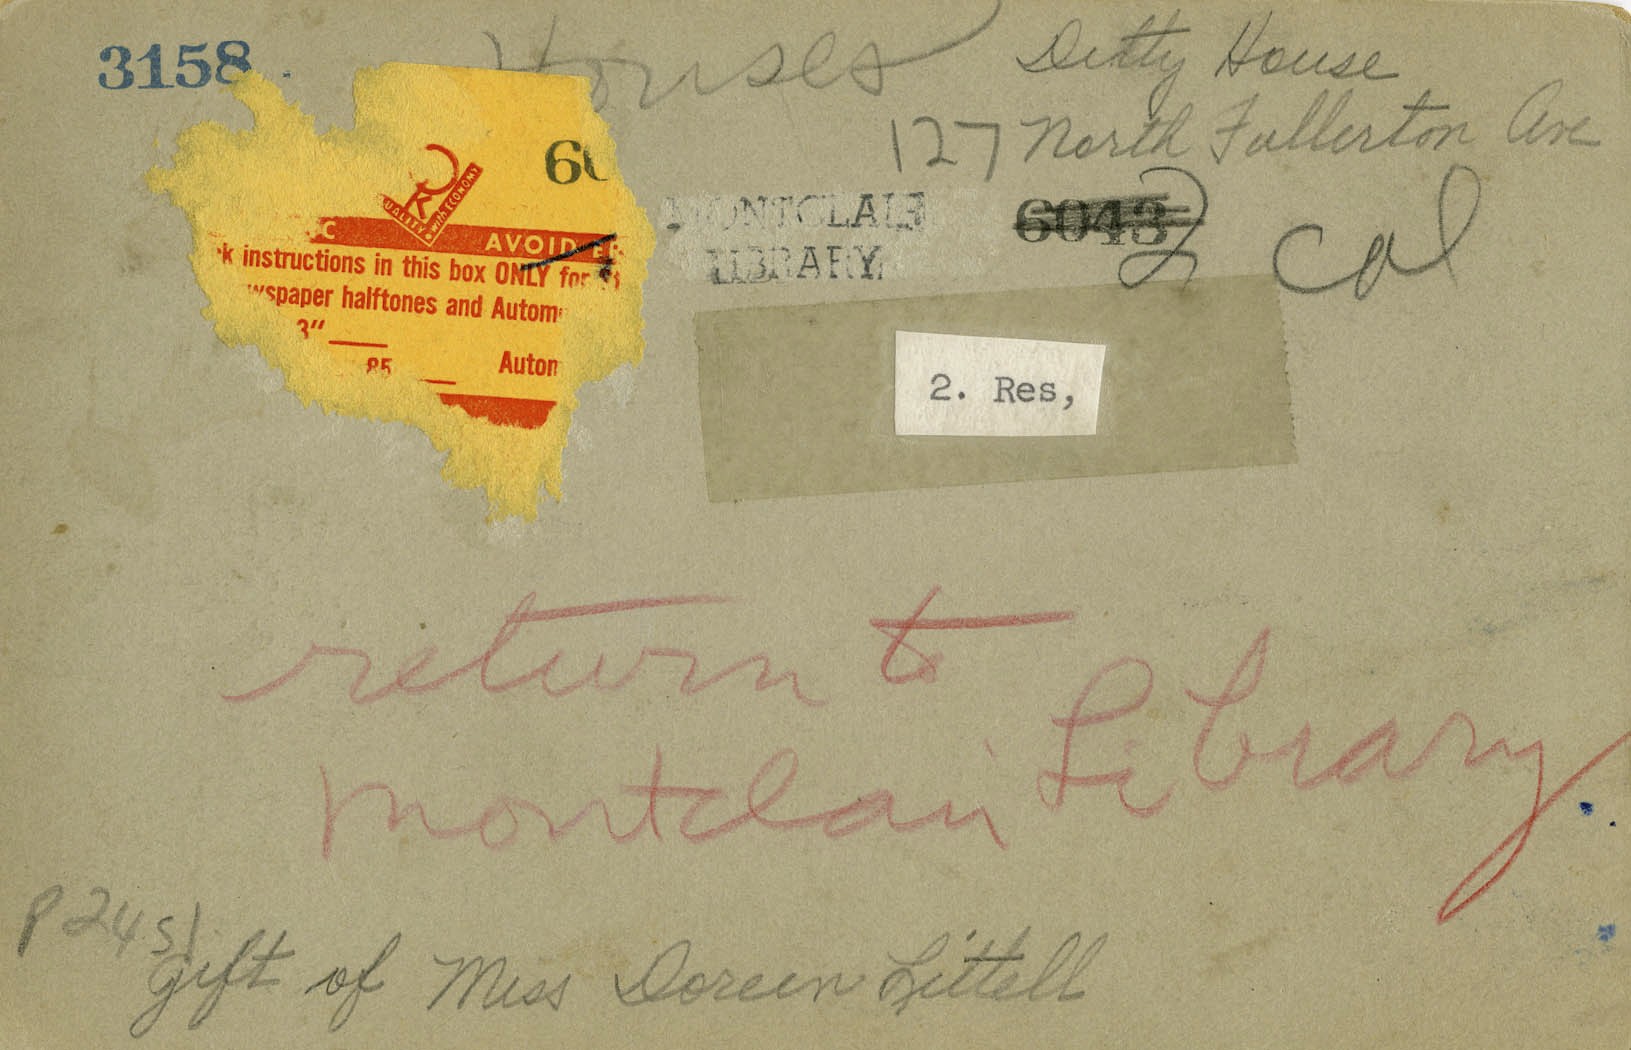 3158
Houses
Ditty House
127 North Fullerton Ave
MONTCLAIR
LIBRARY
6043
2 col
60
QUALITY with ECONOMY
AVOID
k instructions in this box ONLY for
wspaper halftones and Autom
3"
85 Autom
2. Res,
return to
Montclair Library
P 24 s)
gift of Miss Doreen Littell